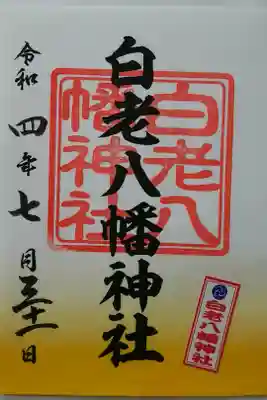 白老八幡神社
令和四年七月三十一日
白老八
幡神社
白老八幡神社